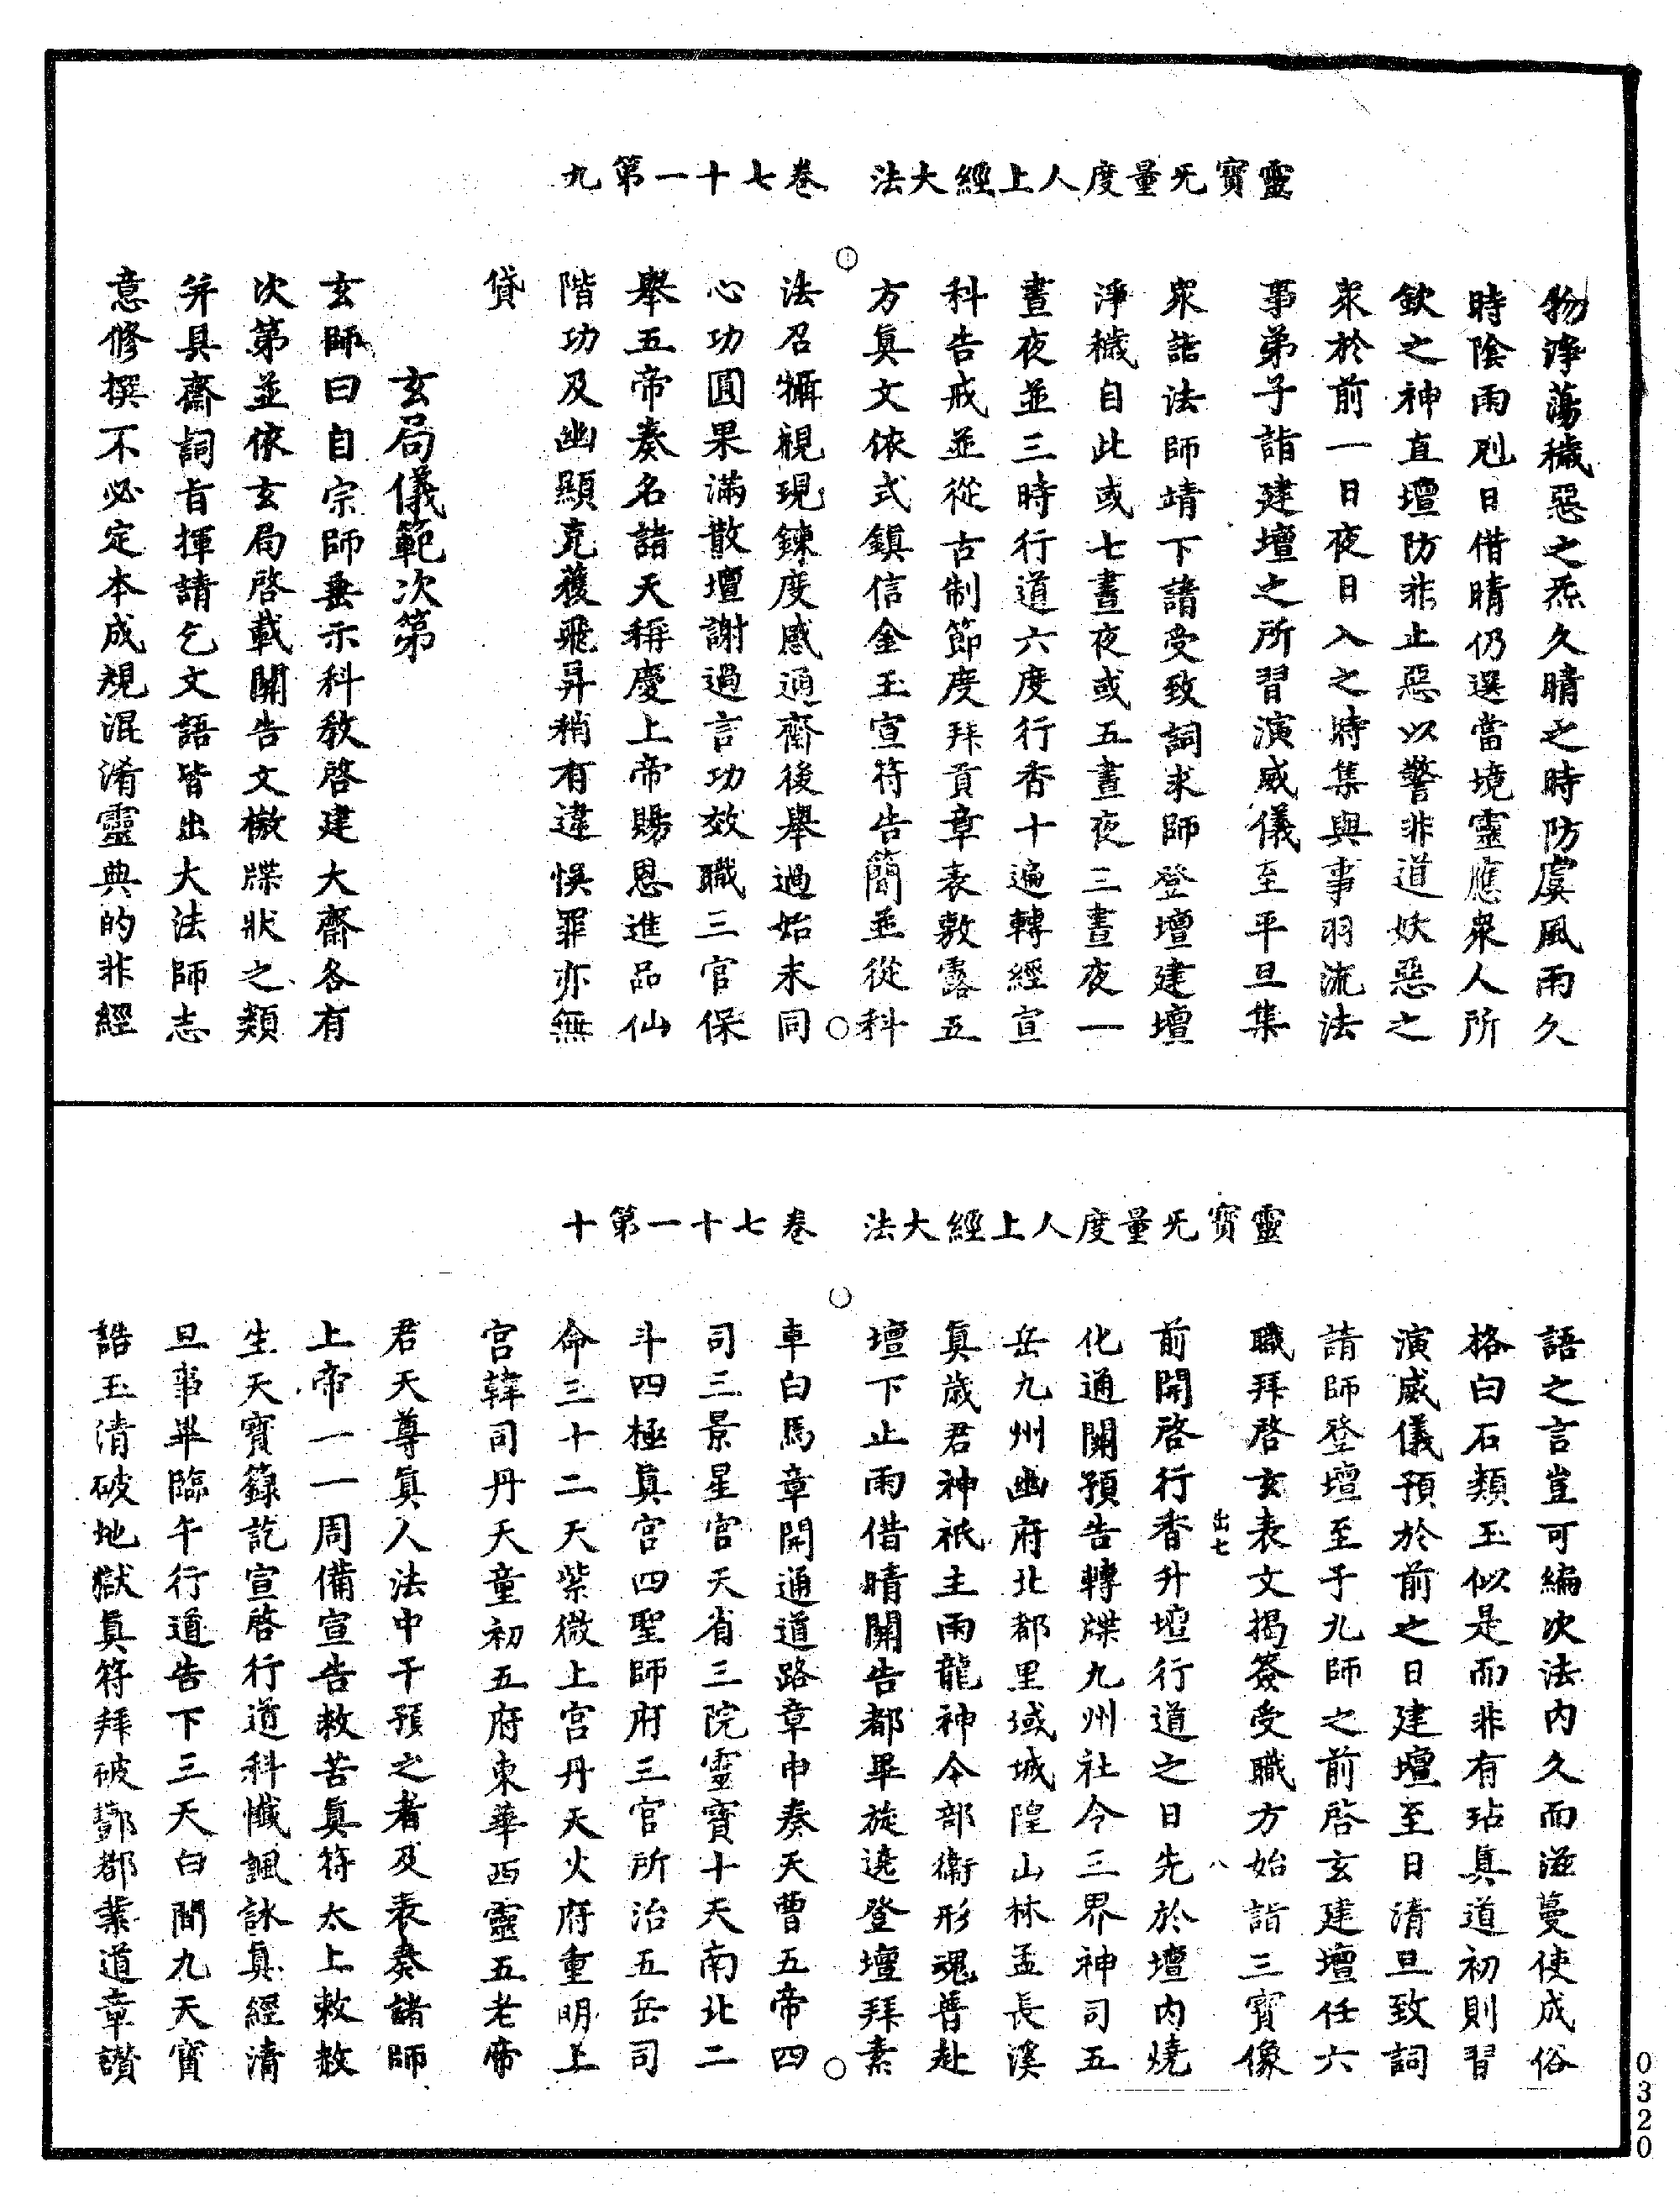 靈寶无量度人上經大法　卷七十一第九
物淨蕩穢惡之炁久晴之時防虞風雨久
時陰雨剋日借晴仍選當境靈應衆人所
欽之神直壇防非止惡以警非道妖惡之
衆於前一日夜日入之時集與事羽流法
事弟子詣建壇之所習演威儀至平旦集
衆詣法師靖下請受致詞求師登壇建壇
淨穢自此或七晝夜或五晝夜三晝夜一
晝夜並三時行道六度行香十遍轉經宣
科告戒並從古制節度拜貢章表敷露五
方眞文依式鎮信金玉宣符告簡並從科
法召攝視現鍊度感通齋後舉過始末同
心功圓果滿散壇謝過言功效職三官保
舉五帝奏名諸天稱慶上帝賜恩進品仙
階功及幽顯克獲飛昇稍有違悞罪亦無
貸
玄局儀範次第
玄師曰自宗師垂示科教啓建大齋各有
次第並依玄局啓載關告文檄牒狀之類
并具齋詞旨揮請乞文語皆出大法師志
意修撰不必定本成規混淆靈典的非經
靈寶无量度人上經大法　卷七十一第十
語之言豈可編次法內久而滋蔓使成俗
格白石類玉似是而非有玷眞道初則習
演威儀預於前之日建壇至日清旦致詞
請師登壇至于九師之前啓玄建壇任六
職拜啓玄表文揭簽受職方始詣三寶像
出七　八
前開啓行香升壇行道之日先於壇內燒
化通關預告轉牒九州社令三界神司五
岳九州幽府北都里域城隍山林孟長溪
眞歲君神祇主雨龍神令部衞形魂普赴
壇下止雨借晴關告都畢旋遶登壇拜素
車白馬章開通道路章申奏天曹五帝四
司三景星宮天省三院靈寶十天南北二
斗四極眞宮四聖師府三官所治五岳司
命三十二天紫微上宮丹天火府重明上
宮韓司丹天童初五府東華西靈五老帝
君天尊眞人法中干預之者及表奏諸師
上帝一一周備宣告救苦眞符太上敕救
生天寶籙訖宣啓行道科懺諷詠眞經清
旦事畢臨午行道告下三天白簡九天寶
誥玉清破地獄眞符拜破酆都業道章讃
0320